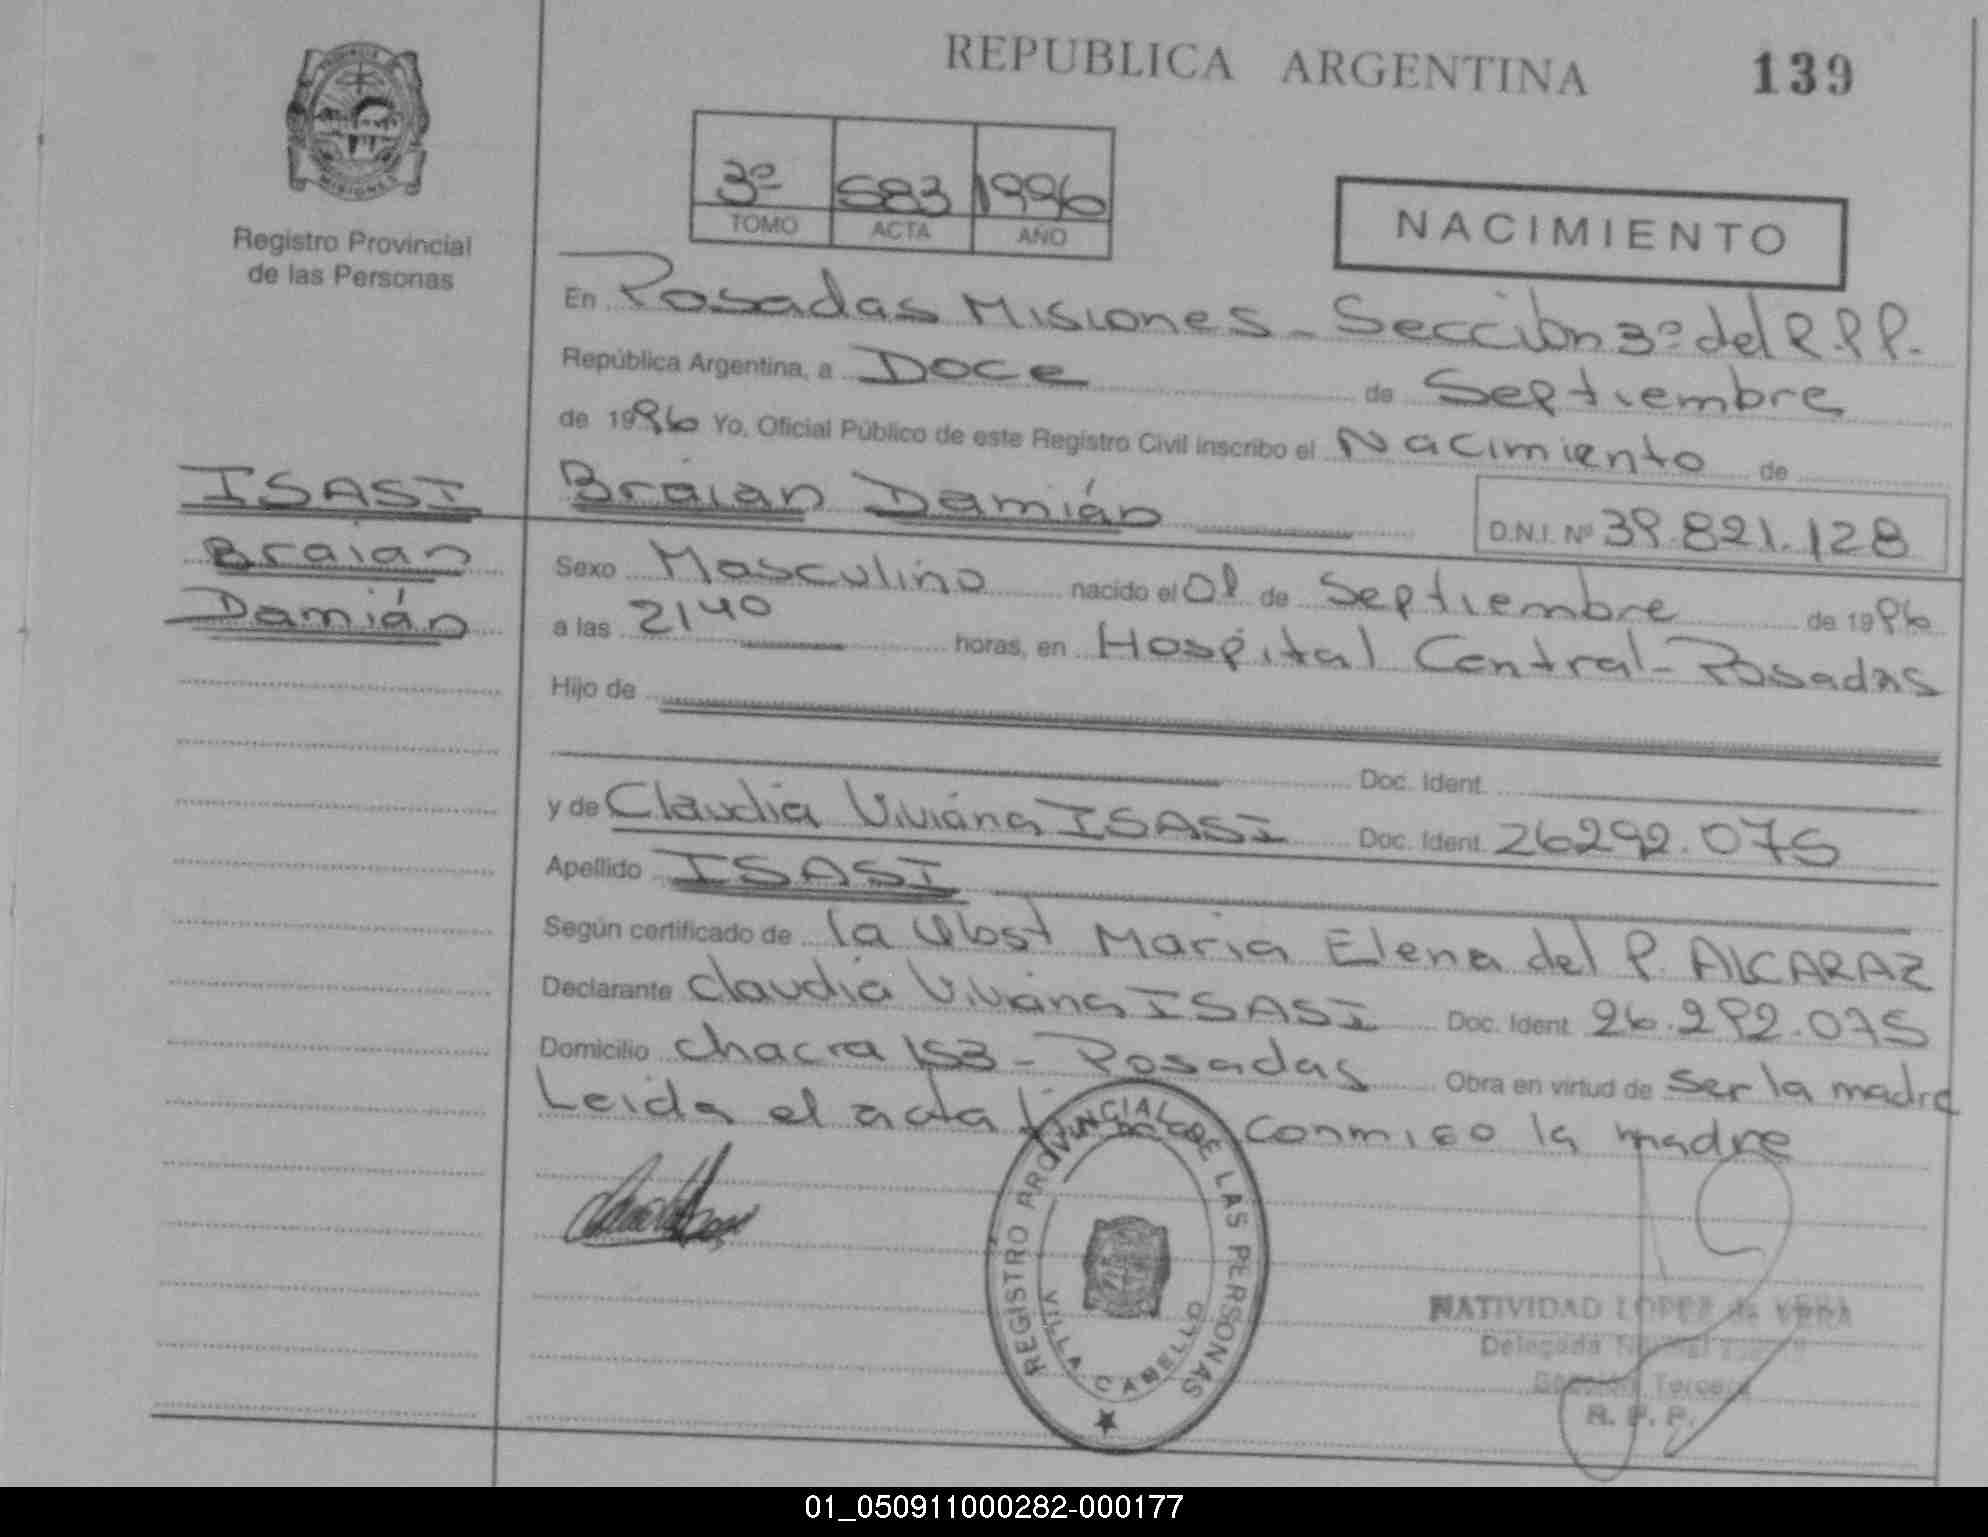 REPUBLICA ARGENTINA 139
PROVINCIA
MISIONES
Registro Provincial
de las Personas
3º 583 1996
TOMO ACTA AÑO
NACIMIENTO
En Posadas Misiones - Sección 3º del R.P.P.
República Argentina, a Doce de Septiembre
de 1996 Yo, Oficial Público de este Registro Civil inscribo el Nacimiento de
ISASI
Braian
Damián
Braian Damián D.N.I. Nº 39.821.128
Sexo Masculino nacido el 01 de Septiembre de 1996
a las 2140 horas, en Hospital Central - Posadas
Hijo de
Doc. Ident.
y de Claudia Viviana ISASI Doc. Ident. 26292.075
Apellido ISASI
Según certificado de la Obst Maria Elena del P. ALCARAZ
Declarante Claudia Viviana ISASI Doc. Ident. 26.292.075
Domicilio Chacra 153 - Posadas Obra en virtud de ser la madre
Leida el acta conmigo la madre
REGISTRO PROVINCIAL DE LAS PERSONAS
VILLA CABELLO
NATIVIDAD LOPEZ de VERA
Delegada
Sección Tercera
R. P. P.
01_050911000282-000177